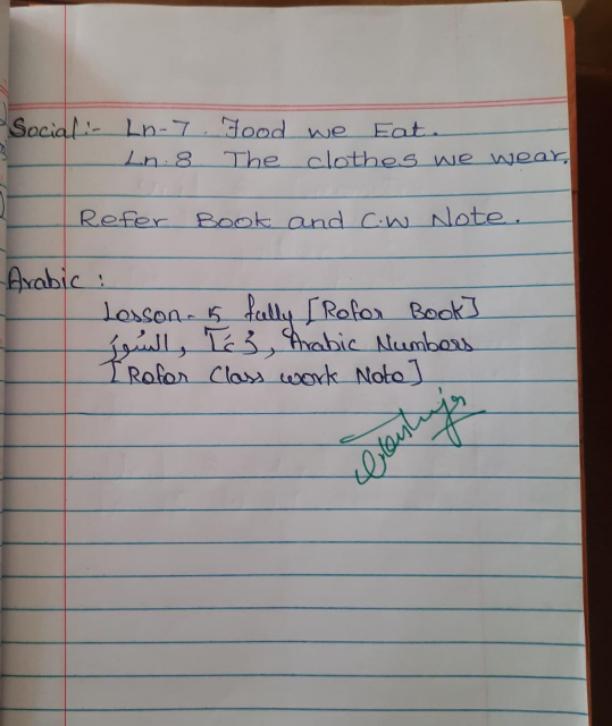 Social:- Ln-7. Food we Eat.
Ln.8 The clothes we wear.
Refer Book and C.w Note.
Arabic :
Lesson-5 fully [Refer Book]
السُوَرُ, دُعَآ, Arabic Numbers
[Refer Class work Note]